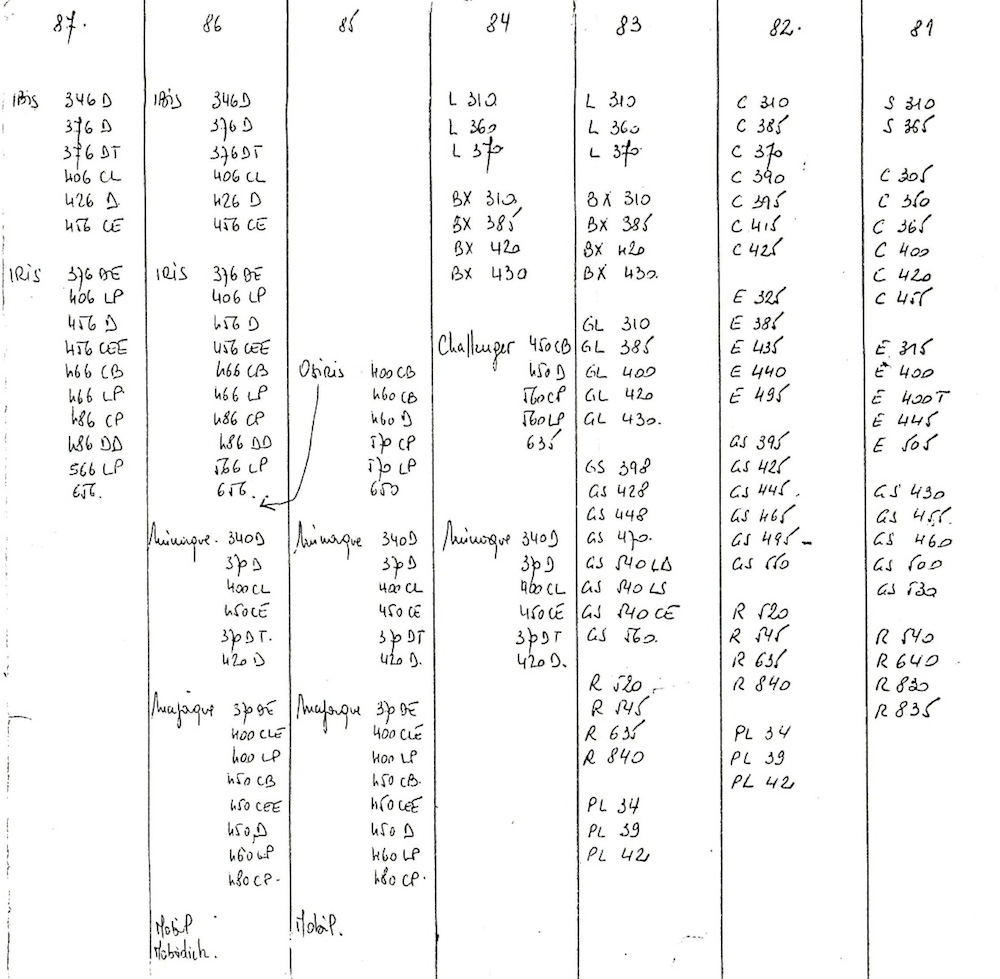 87.
IBis 346 D
376 D
376 DT
406 CL
426 D
456 CE
IRis 376 DE
406 LP
456 D
456 CEE
466 CB
466 LP
486 CP
486 DD
566 LP
656.
86
IBis 346 D
376 D
376 DT
406 CL
426 D
456 CE
IRis 376 DE
406 LP
456 D
456 CEE
466 CB
466 LP
486 CP
486 DD
566 LP
656.
Minorque. 340 D
370 D
400 CL
450 CE
370 DT.
420 D
Majorque 370 DE
400 CLE
400 LP
450 CB
450 CEE
450 D
460 LP
480 CP.
Mobil
Mobidick.
85
Osiris 400 CB
460 CB
460 D
570 CP
570 LP
650
Minorque 340 D
370 D
400 CL
450 CE
370 DT
420 D.
Majorque 370 DE
400 CLE
400 LP
450 CB.
450 CEE
450 D
460 LP
480 CP.
Mobil.
84
L 310
L 360
L 370
BX 310
BX 385
BX 420
BX 430
Challenger 450 CB
450 D
560 CP
560 LP
635
Minorque 340 D
370 D
400 CL
450 CE
370 DT
420 D.
83
L 310
L 360
L 370
BX 310
BX 385
BX 420
BX 430.
GL 310
GL 385
GL 400
GL 420
GL 430.
GS 398
GS 428
GS 448
GS 470.
GS 540 LD
GS 540 LS
GS 540 CE
GS 560.
R 520
R 545
R 635
R 840
PL 34
PL 39
PL 42
82.
C 310
C 385
C 370
C 390
C 395
C 415
C 425
E 325
E 385
E 435
E 440
E 495
GS 395
GS 425
GS 445.
GS 465
GS 495
GS 550
R 520
R 545
R 635
R 840
PL 34
PL 39
PL 42
81
S 310
S 365
C 305
C 350
C 365
C 400
C 420
C 455
E 315
E 400
E 400T
E 445
E 505
GS 430
GS 455.
GS 460
GS 500
GS 530
R 540
R 640
R 830
R 835